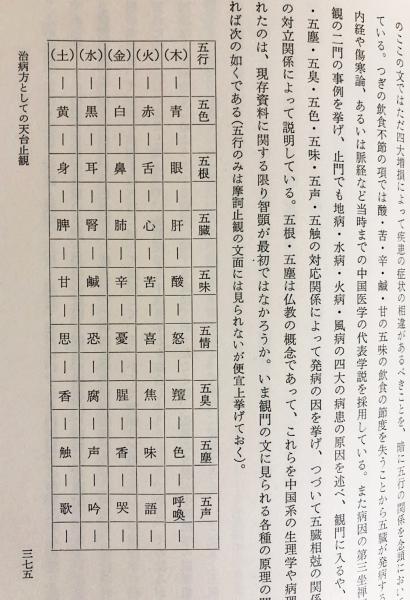 のここの文ではただ四大増損によって疾患の症状の相違があるべきことを、暗に五行の関係を念頭におい
ている。つぎの飲食不節の項では酸・苦・辛・鹹・甘の五味の飲食の節度を失うことから五臓が発病する
内経や傷寒論、あるいは脈経など当時までの中国医学の代表学説を採用している。また病因の第三坐禅
観の二門の事例を挙げ、止門でも地病・水病・火病・風病の四大の病患の原因を述べ、観門に入るや、
・五塵・五臭・五色・五味・五声・五触の対応関係によって発病の因を挙げ、つづいて五臓相尅の関係
の対立関係によって説明している。五根・五塵は仏教の概念であって、これらを中国系の生理学や病理
れたのは、現存資料に関する限り智顗が最初ではなかろうか。いま観門の文に見られる各種の原理の
れば次の如くである(五行のみは摩訶止観の文面には見られないが便宜上挙げておく)。
五行 五色 五根 五臓 五味 五情 五臭 五塵 五声
(木)―青―眼―肝―酸―怒―羶―色―呼喚―
(火)―赤―舌―心―苦―喜―焦―味―語―
(金)―白―鼻―肺―辛―憂―腥―香―哭―
(水)―黒―耳―腎―鹹―恐―腐―声―吟―
(土)―黄―身―脾―甘―思―香―触―歌―
治病方としての天台止観
三七五